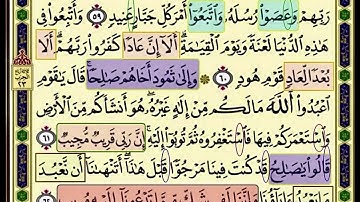 رَبِّهِمْ وَعَصَوْا۟ رُسُلَهُۥ وَٱتَّبَعُوٓا۟ أَمْرَ كُلِّ جَبَّارٍ عَنِيدٍ ٥٩ وَأُتْبِعُوا۟ فِى
هَٰذِهِ ٱلدُّنْيَا لَعْنَةً وَيَوْمَ ٱلْقِيَٰمَةِ ۗ أَلَآ إِنَّ عَادًا كَفَرُوا۟ رَبَّهُمْ ۗ أَلَا
بُعْدًا لِّعَادٍ قَوْمِ هُودٍ ٦٠ ۞ وَإِلَىٰ ثَمُودَ أَخَاهُمْ صَٰلِحًا ۚ قَالَ يَٰقَوْمِ
ٱعْبُدُوا۟ ٱللَّهَ مَا لَكُم مِّنْ إِلَٰهٍ غَيْرُهُۥ ۖ هُوَ أَنشَأَكُم مِّنَ ٱلْأَرْضِ
وَٱسْتَعْمَرَكُمْ فِيهَا فَٱسْتَغْفِرُوهُ ثُمَّ تُوبُوٓا۟ إِلَيْهِ ۚ إِنَّ رَبِّى قَرِيبٌ مُّجِيبٌ ٦١
قَالُوا۟ يَٰصَٰلِحُ قَدْ كُنتَ فِينَا مَرْجُوًّا قَبْلَ هَٰذَآ ۖ أَتَنْهَىٰنَآ أَن نَّعْبُدَ